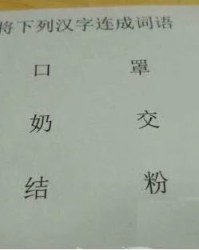 将下列汉字连成词语
口 罩
奶 交
结 粉